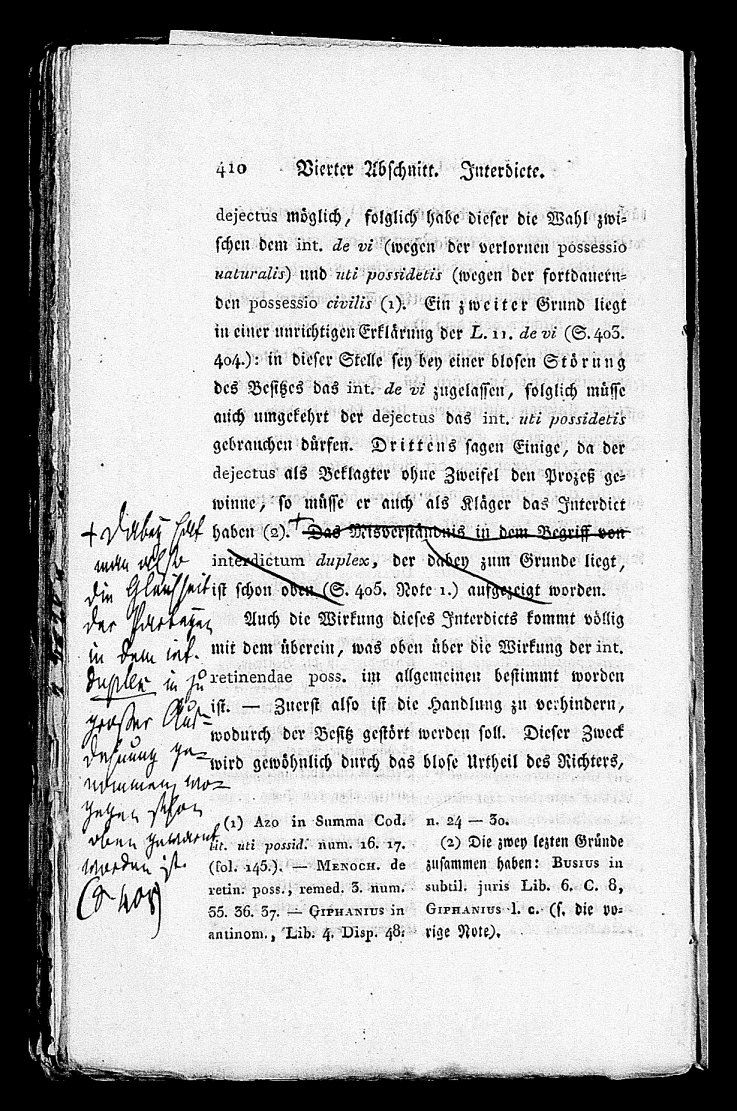 410 Vierter Abschnitt. Interdicte.
dejectus möglich, folglich habe dieser die Wahl zwi-
schen dem int. de vi (wegen der verlornen possessio
naturalis) und uti possidetis (wegen der fortdauern-
den possessio civilis (1). Ein zweiter Grund liegt
in einer unrichtigen Erklärung der L. 11. de vi (S. 403.
404.): in dieser Stelle sey bey einer blosen Störung
des Besitzes das int. de vi zugelassen, folglich müsse
auch umgekehrt der dejectus das int. uti possidetis
gebrauchen dürfen. Drittens sagen Einige, da der
dejectus als Beklagter ohne Zweifel den Prozeß ge-
winne, so müsse er auch als Kläger das Interdict
haben (2). + Das Misverständnis in dem Begriff von
interdictum duplex, der dabey zum Grunde liegt,
ist schon oben (S. 405. Note 1.) aufgezeigt worden.
Auch die Wirkung dieses Interdicts kommt völlig
mit dem überein, was oben über die Wirkung der int.
retinendae poss. im allgemeinen bestimmt worden
ist. — Zuerst also ist die Handlung zu verhindern,
wodurch der Besitz gestört werden soll. Dieser Zweck
wird gewöhnlich durch das blose Urtheil des Richters,
+ Dabey hat
man also
die Gleichheit
der Parteyen
in dem int.
duplex in zu
großer Aus-
dehnung ge-
nommen, wo-
gegen schon
oben gewarnt
worden ist
(S 408)
(1) Azo in Summa Cod.
tit. uti possid. num. 16. 17.
(fol. 145.). — Menoch. de
retin. poss., remed. 3. num.
35. 36. 37. — Giphanius in
antinom., Lib. 4. Disp. 48.
n. 24 — 30.
(2) Die zwey lezten Gründe
zusammen haben: Busius in
subtil. juris Lib. 6. C. 8,
Giphanius l. c. (s. die vo-
rige Note).